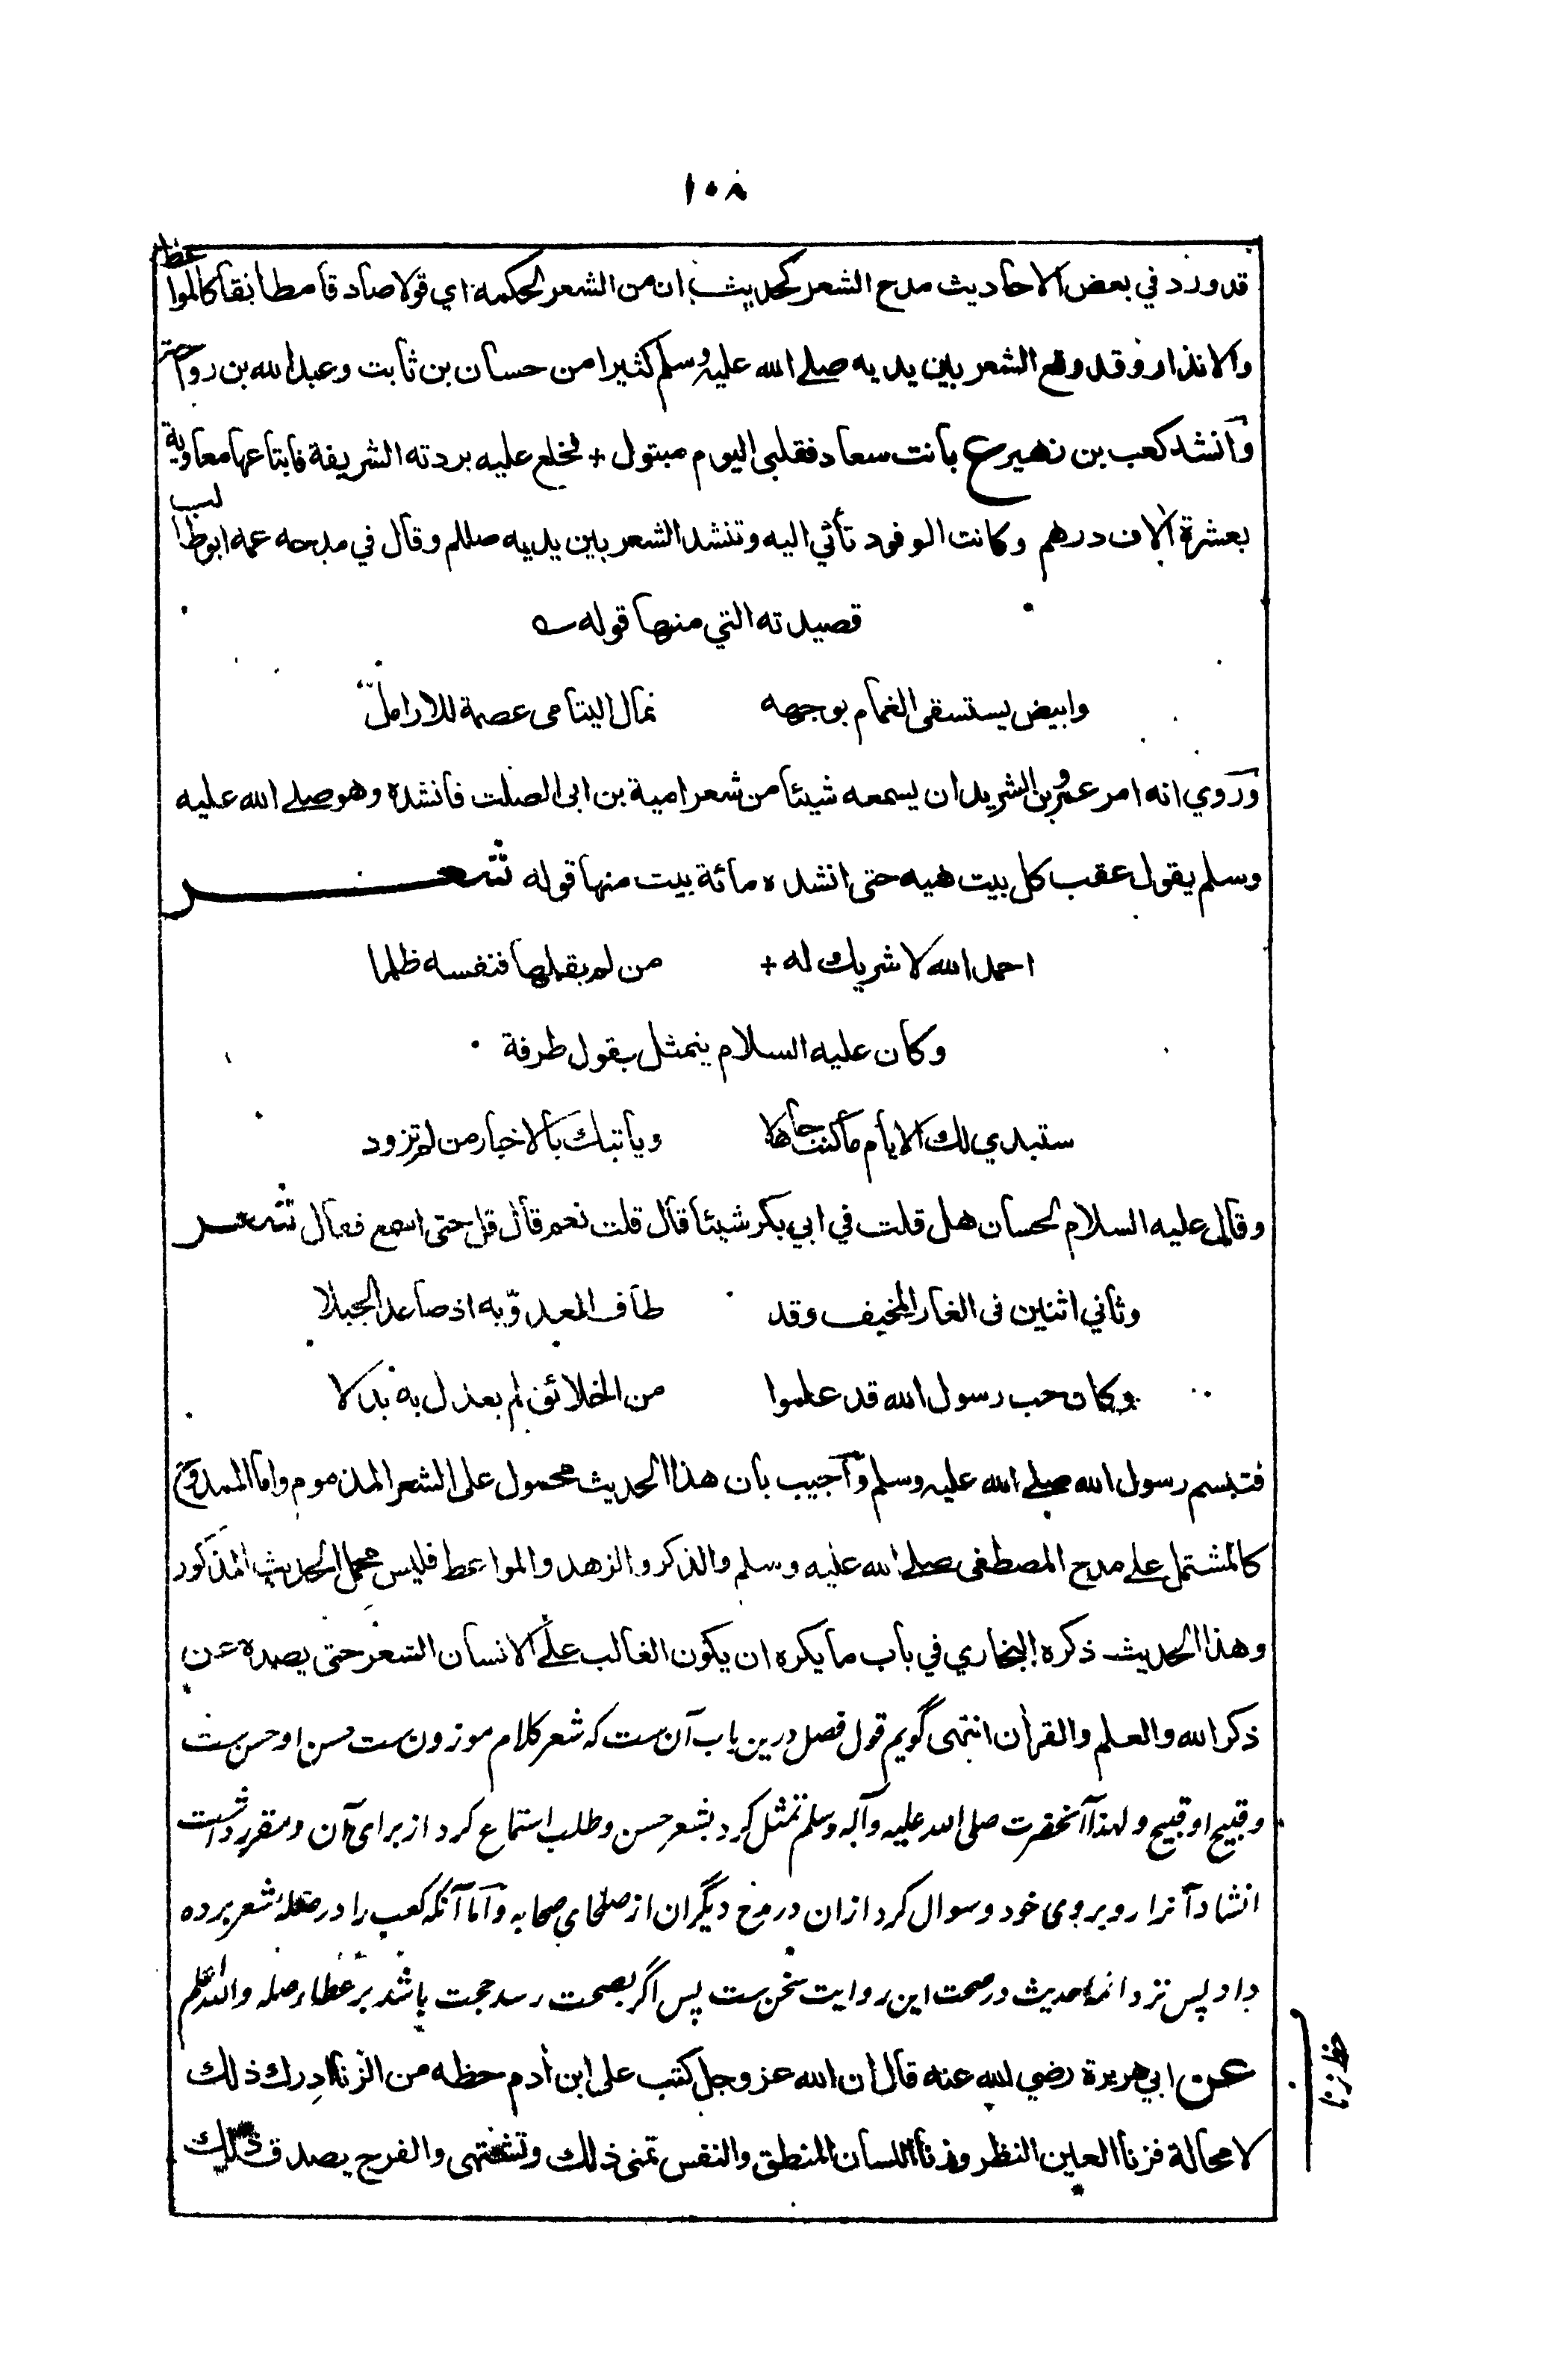 ١٠٨
قد ورد في بعض الاحاديث مدح الشعر كحديث ان من الشعر لحكمة اي قولا صادقا مطابقا كالمواعظ
والانذار وقد وقع الشعر بين يديه صلے الله عليه وسلم كثيرا من حسان بن ثابت وعبد الله بن رواحة
وانشد كعب بن زهير ع بانت سعاد فقلبي اليوم متبول + فخلع عليه بردته الشريفة فابتاعها معاوية
بعشرة الاف درهم وكانت الوفود تأتي اليه وتنشد الشعر بين يديه صللم وقال في مدحه عمه ابو طالب
قصيدته التي منها قوله ؎
وابيض يستسقى الغمام بوجهه ثمال اليتامى عصمة للارامل
وروي انه امر عمرو بن الشريد ان يسمعه شيئا من شعر امية بن ابى الصلت فانشده وهو صلے الله عليه
وسلم يقول عقب كل بيت هيه حتى انشده مائة بيت منها قوله شعـــر
احمد الله لا شريك له + من لم يقلها فنفسه ظلما
وكان عليه السلام يتمثل بقول طرفة
ستبدي لك الايام ما كنت جاهلا ويأتيك بالاخبار من لم تزود
وقال عليه السلام لحسان هل قلت في ابي بكر شيئا قال قلت نعم قال قل حتى اسمع فقال شعـــر
وثاني اثنين فى الغار المخيف وقد طاف العدو به اذ صاعد الجبلا
وكان حب رسول الله قد علموا من الخلائق لم يعدل به بدلا
فتبسم رسول الله صلے الله عليه وسلم واجيب بان هذا الحديث محمول على الشعر المذموم واما الممدوح
كالمشتمل علے مدح المصطفى صلے الله عليه وسلم والذكر والزهد والمواعظ فليس محمل الحديث المذكور
وهذا الحديث ذكره البخاري في باب ما يكره ان يكون الغالب علے الانسان الشعر حتى يصده عن
ذكر الله والعلم والقرأن انتهى گويم قول فصل درين باب آن ست كه شعر كلام موزون ست حسن او حسن ست
وقبيح او قبيح ولهذا آنحضرت صلى الله عليه وآله وسلم تمثل كرد بشعر حسن وطلب استماع كرد از براى آن ومقرر داشت
انشاد آنرا روبروى خود وسوال كرد ازان در مدح ديگران از صلحاى صحابه واما آنكه كعب را در صلۀ شعر برده
داد پس نزد ائمۀ حديث در صحت اين روايت سخن ست پس اگر بصحت رسد حجت باشد بر عطاء صله والله اعلم
عن ابي هريرة رضي الله عنه قال ان الله عز وجل كتب على ابن أدم حظه من الزنا ادرك ذلك
لا محالة فزنا العين النظر وزنا اللسان المنطق والنفس تمنى ذلك وتشتهى والفرج يصدق ذلك
حظ زنا